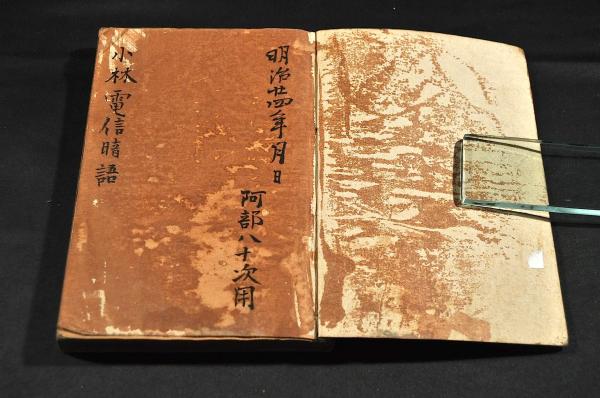 明治廿四年月日
阿部八十次用
小林電信暗語